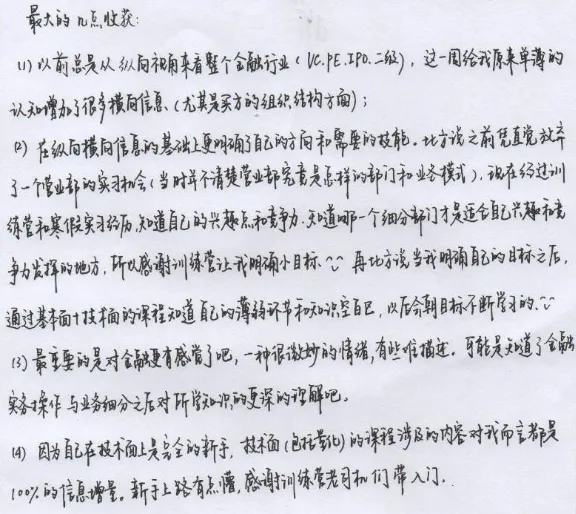 最大的几点收获:
(1) 以前总是从纵向视角来看整个金融行业(VC.PE.IPO.二级), 这一周给我原来单薄的
认知增加了很多横向信息.(尤其是买方的组织结构方面);
(2) 在纵向横向信息的基础上更明确了自己的方向和需要的技能。比方说之前凭直觉放弃
了一个营业部的实习机会(当时并不清楚营业部究竟是怎样的部门和业务模式), 现在经过训
练营和寒假实习经历,知道自己的兴趣点和竞争力.知道哪一个细分部门才是适合自己兴趣和竞
争力发挥的地方, 所以感谢训练营让我明确小目标. 再比方说当我明确自己的目标之后,
通过基本面+技术面的课程知道自己的薄弱环节和知识空白, 以后会朝目标不断学习的.
(3) 最重要的是对金融更有感觉了吧, 一种很微妙的情绪,有些难描述. 可能是知道了金融
实务操作与业务细分之后对所学知识的更深的理解吧。
(4) 因为自己在技术面上是完全的新手, 技术面(包括量化)的课程涉及的内容对我而言都是
100%的信息增量。新手上路有点懵, 感谢训练营老司机们带入门.